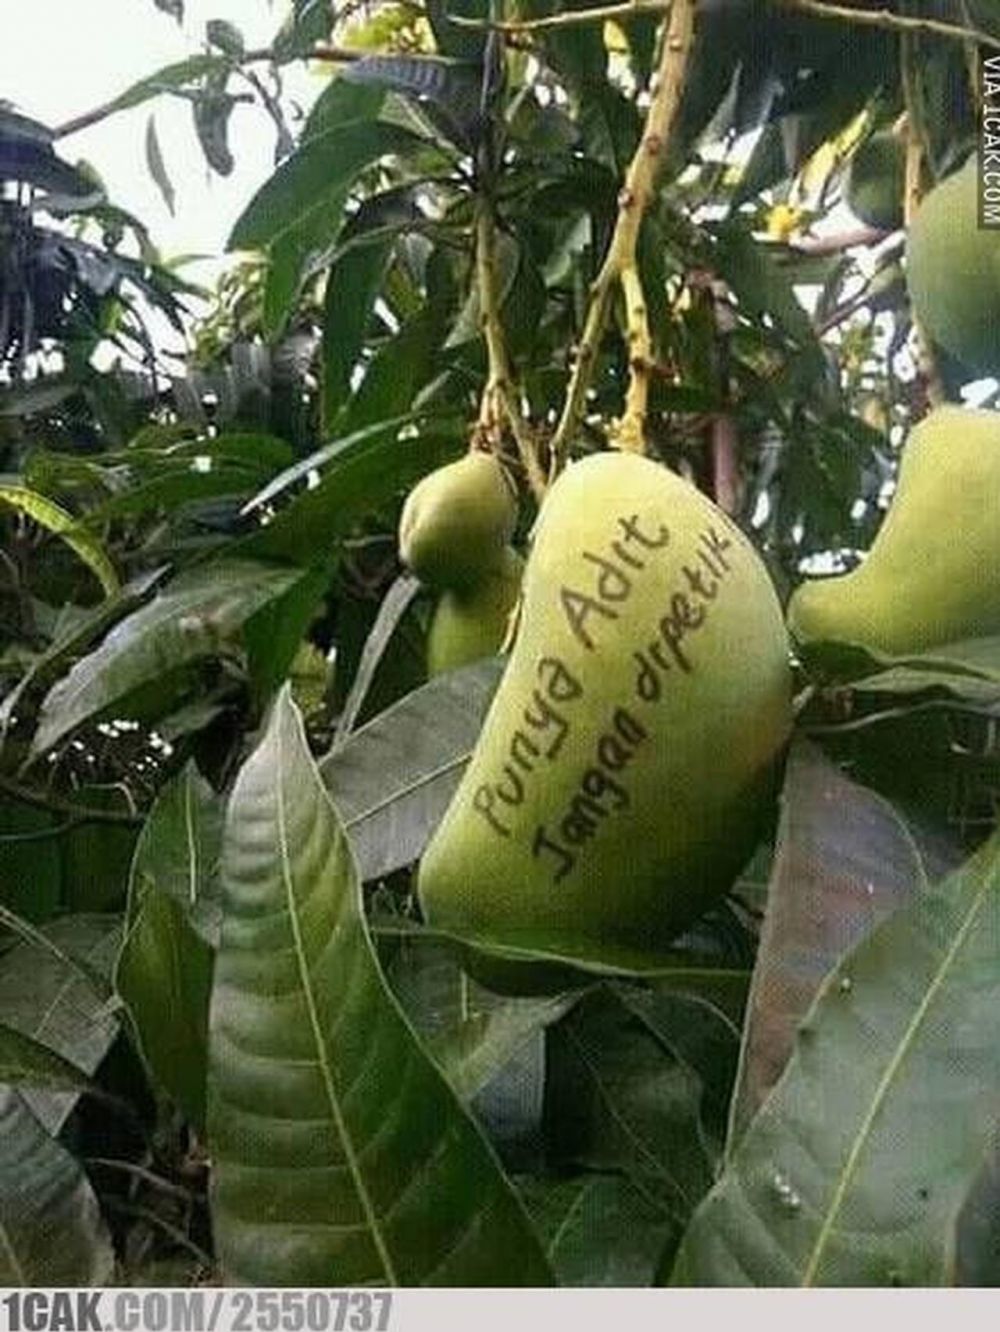 VIA 1CAK.COM
Punya Adit
Jangan dipetik
1CAK.COM/2550737